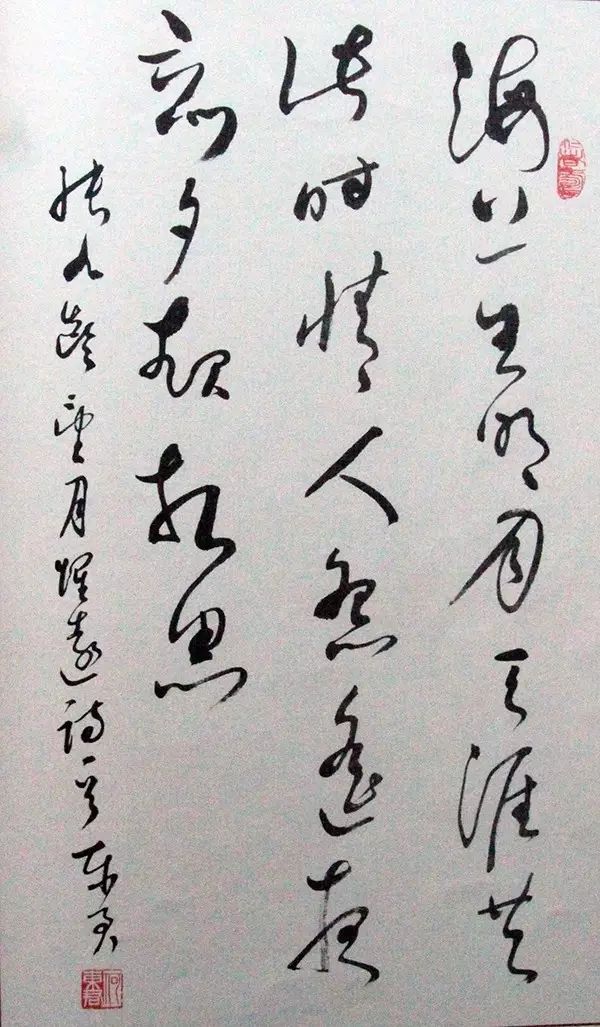 海上生明月天涯共
此时情人怨遥夜
竟夕起相思
张九龄望月懷遠诗一首 东君